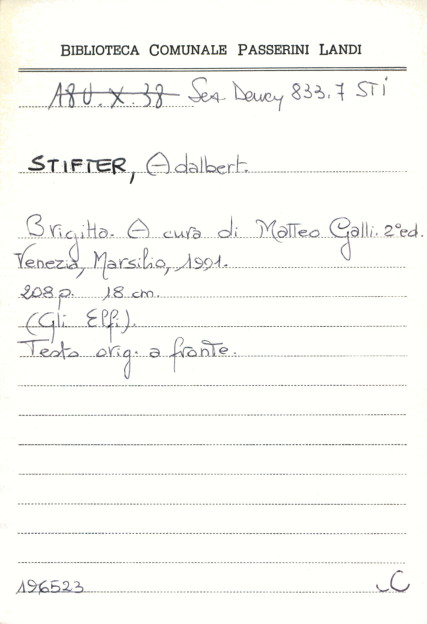 BIBLIOTECA COMUNALE PASSERINI LANDI
180.X.38 Sez Dewey 833.7 STI
STIFTER, Adalbert.
Brigitta. A cura di Matteo Galli. 2ª ed.
Venezia, Marsilio, 1991.
208 p. 18 cm.
(Gli Elfi).
Testo orig. a fronte.
196523 C